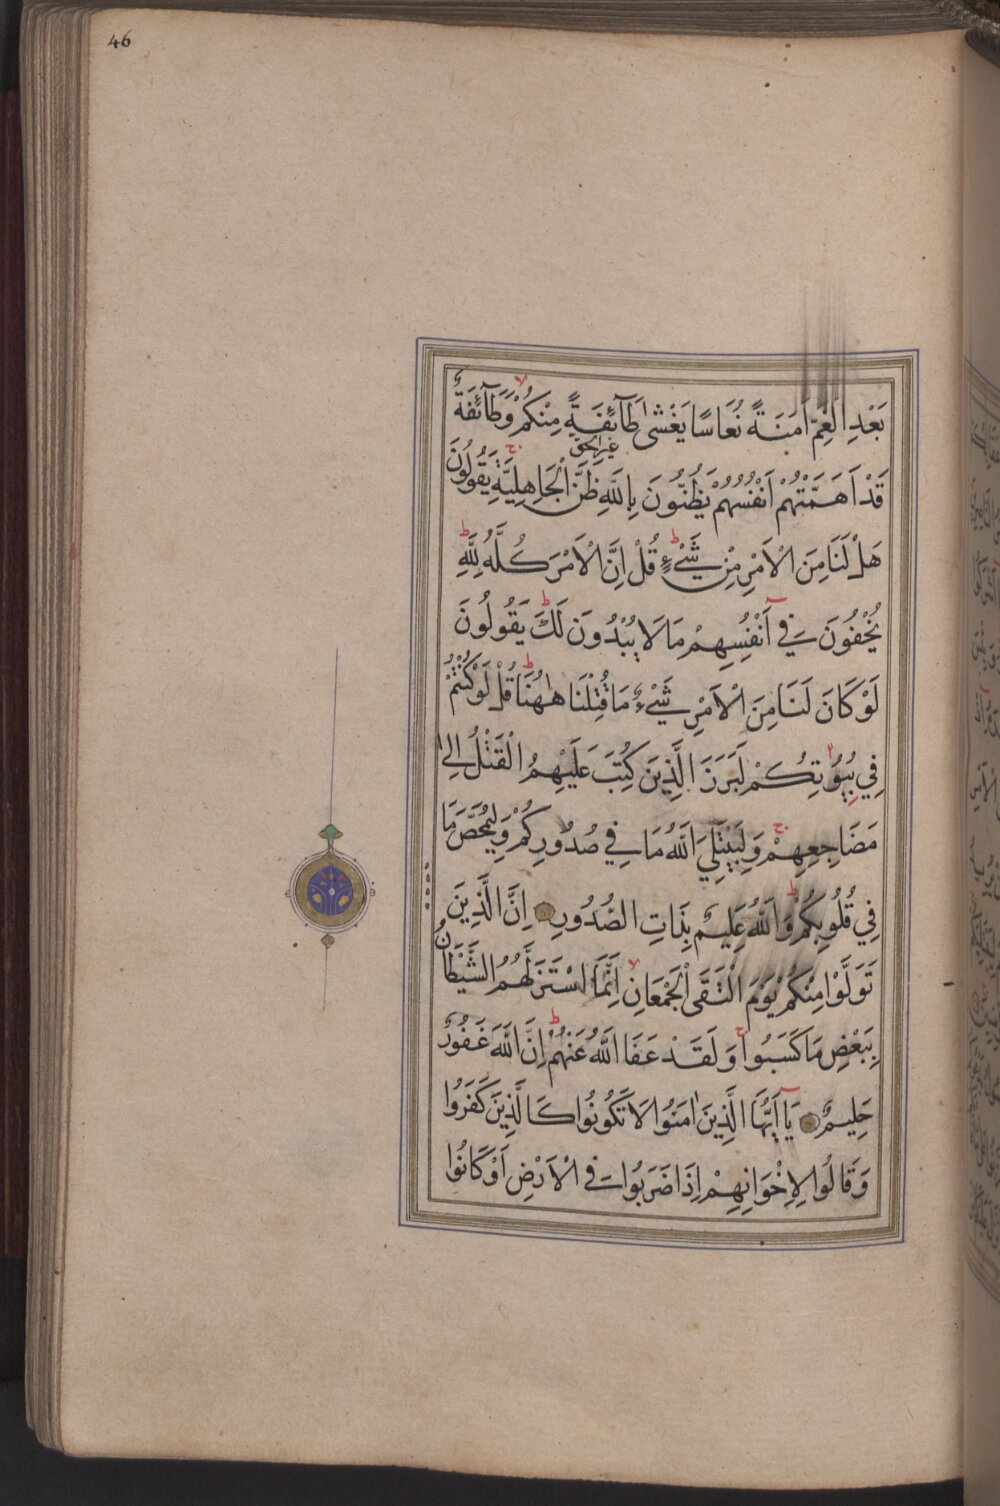 46
بَعْدِ الْغَمِّ اَمَنَةً نُعَاسًا يَغْشٰى طَآئِفَةً مِنْكُمْ وَطَآئِفَةٌ
غَيْرَ الْحَقِّ
قَدْ اَهَمَّتْهُمْ اَنْفُسُهُمْ يَظُنُّونَ بِاللّٰهِ ظَنَّ الْجَاهِلِيَّةِ يَقُولُونَ
هَلْ لَنَا مِنَ الْاَمْرِ مِنْ شَيْءٍ قُلْ اِنَّ الْاَمْرَ كُلَّهُ لِلّٰهِ
يُخْفُونَ فِي اَنْفُسِهِمْ مَا لَا يُبْدُونَ لَكَ يَقُولُونَ
لَوْ كَانَ لَنَا مِنَ الْاَمْرِ شَيْءٌ مَا قُتِلْنَا هٰهُنَا قُلْ لَوْ كُنْتُمْ
فِي بُيُوتِكُمْ لَبَرَزَ الَّذِينَ كُتِبَ عَلَيْهِمُ الْقَتْلُ اِلٰى
مَضَاجِعِهِمْ وَلِيَبْتَلِيَ اللّٰهُ مَا فِي صُدُورِكُمْ وَلِيُمَحِّصَ مَا
فِي قُلُوبِكُمْ وَاللّٰهُ عَلِيمٌ بِذَاتِ الصُّدُورِ اِنَّ الَّذِينَ
تَوَلَّوْا مِنْكُمْ يَوْمَ الْتَقَى الْجَمْعَانِ اِنَّمَا اسْتَزَلَّهُمُ الشَّيْطَانُ
بِبَعْضِ مَا كَسَبُوا وَلَقَدْ عَفَا اللّٰهُ عَنْهُمْ اِنَّ اللّٰهَ غَفُورٌ
حَلِيمٌ يَآ اَيُّهَا الَّذِينَ اٰمَنُوا لَا تَكُونُوا كَالَّذِينَ كَفَرُوا
وَقَالُوا لِاِخْوَانِهِمْ اِذَا ضَرَبُوا فِي الْاَرْضِ اَوْ كَانُوا